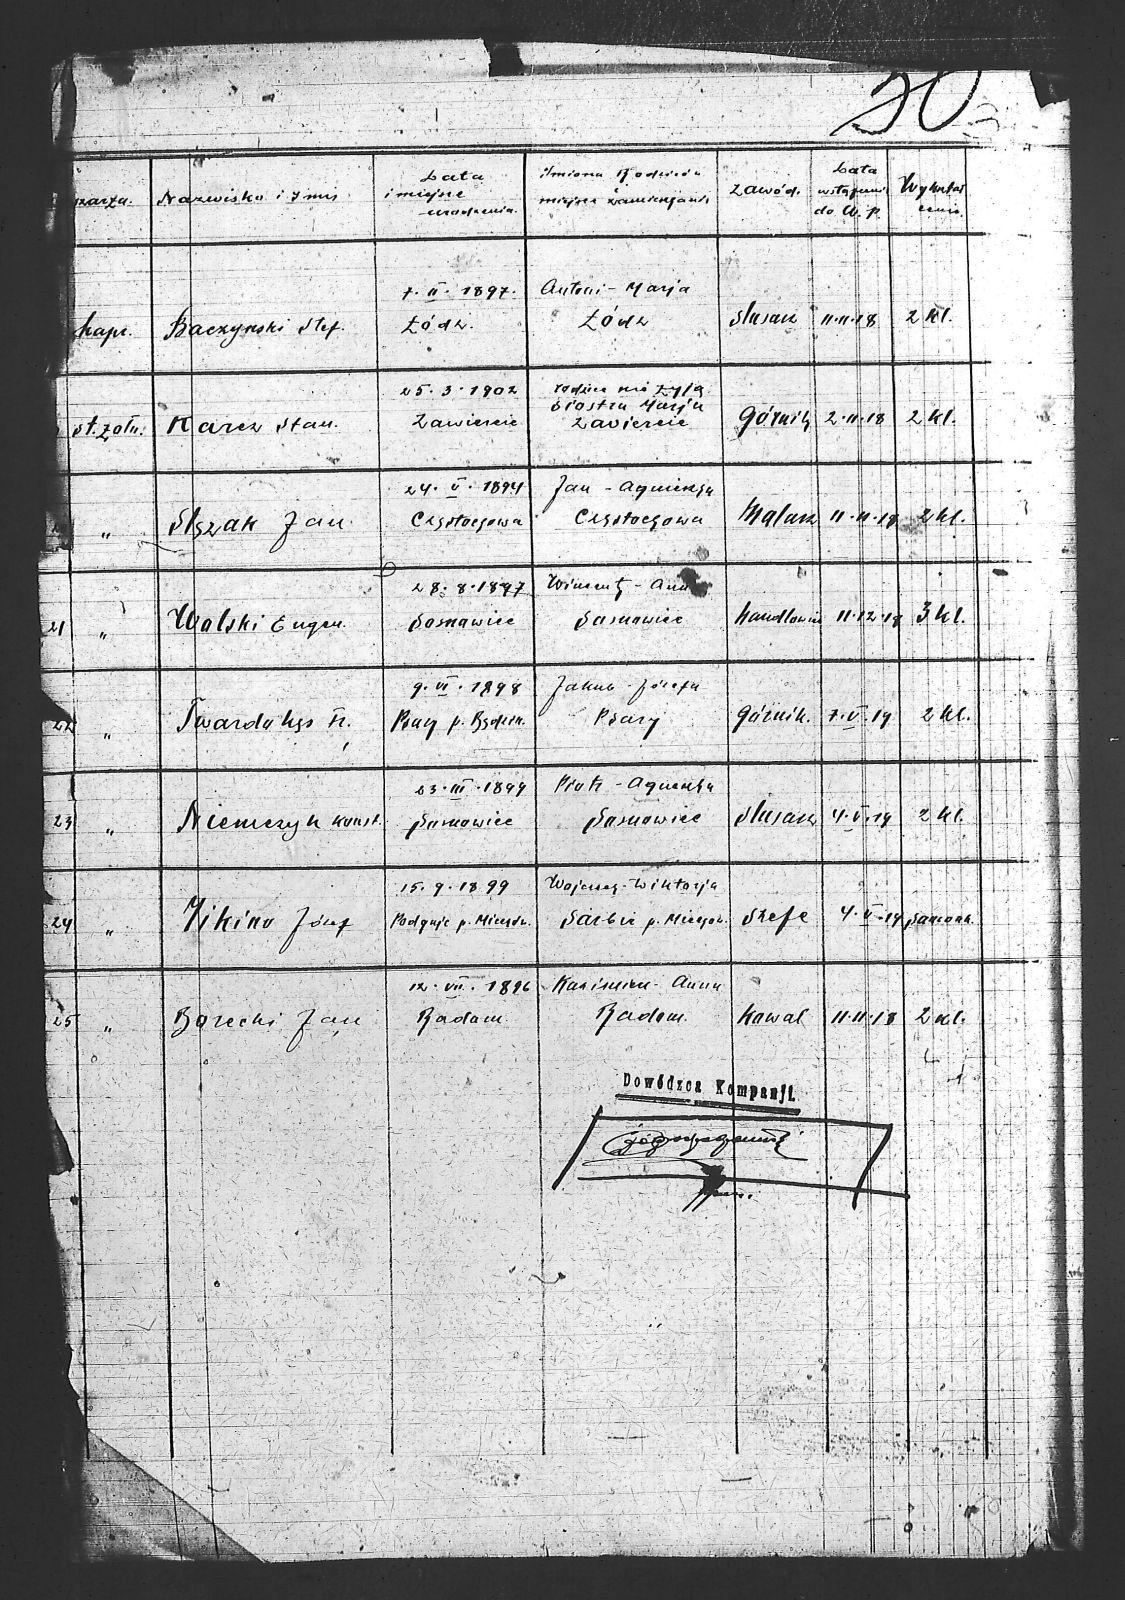 30
Szarża. Nazwisko i Imię Data i miejsce urodzenia. Imiona Rodziców i miejsce zamieszkania Zawód. Data wstąpienia do W. p. Wykształcenie
7. II. 1897. Antoni - Marja
kapr. Baczyński Stef. Łódz. Łódz Slusarz 11.11.18 2 kl.
25. 3. 1902 rodzice nie żyją
siostra Marja
st. żołn. Karcz Stan. Zawiercie Zawiercie Górnik 2.11.18 2 kl.
24. V. 1894 Jan - Agnieszka
" Ślęzak Jan Częstochowa Częstochowa Malarz 11.11.18 2 kl.
28. 8. 1897 Wincenty - Anna
21 " Walski Eugen. Sosnowiec Sosnowiec Handlowiec 11.12.18 3 kl.
9. VI. 1898 Jakub - Józefa
22 " Twardokęs Fr. Psary p. Będzin. Psary Górnik. 7.V.19 2 kl.
23. III. 1899 Piotr - Agnieszka
23 " Niemczyk Konst. Sosnowiec Sosnowiec Slusarz 4.V.19 2 kl.
15. 9. 1899 Wojciech - Wiktorja
24 " Józef p. Miechów. p. Miechów. 4.V.19 Samouk.
12. VII. 1896 Kazimierz - Anna
25 " Borecki Jan Radom. Radom. Kowal 11.11.18 2 kl.
Dowódzca Kompanji.